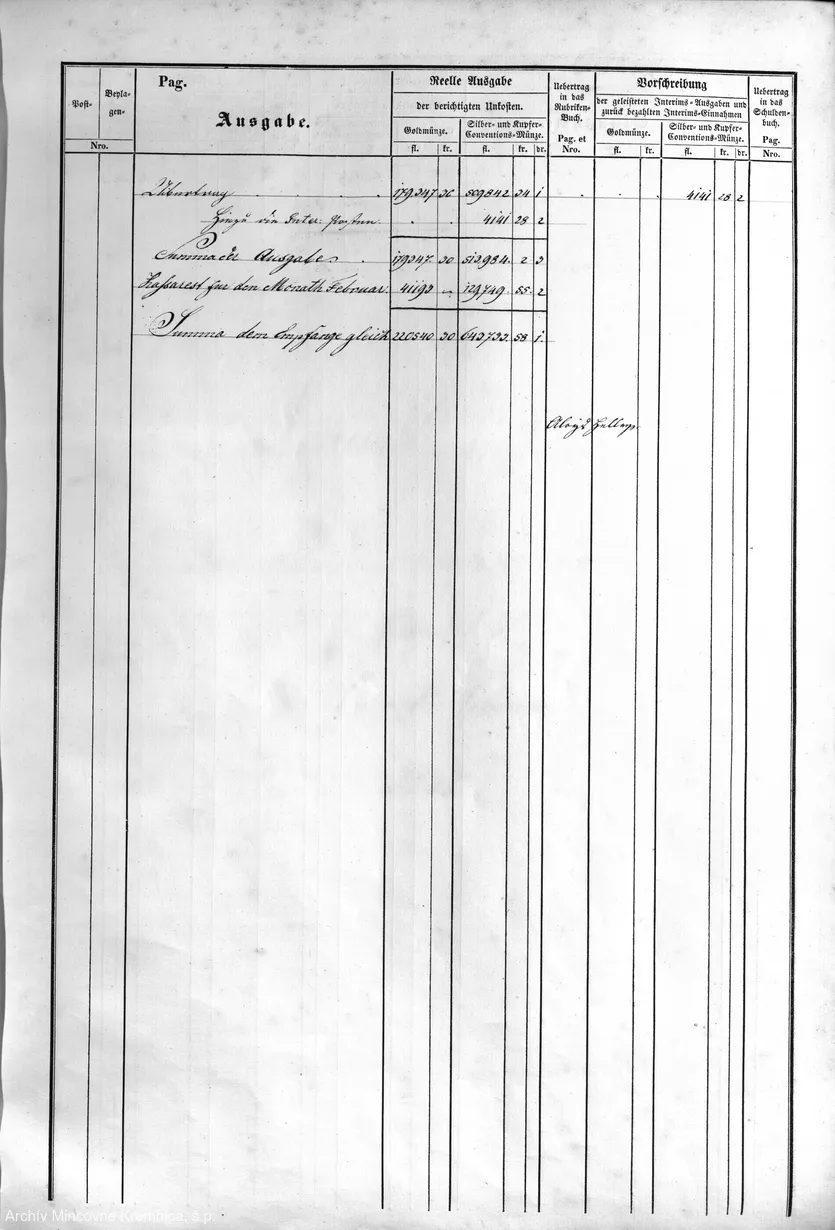 Pag.
Post-
Beyla-
gen-
Nro.
Ausgabe.
Reelle Ausgabe
der berichtigten Unkosten.
Goldmünze.
Silber- und Kupfer-
Conventions-Münze.
fl. kr. fl. kr. dr.
Uebertrag
in das
Rubriken-
Buch.
Pag. et
Nro.
Vorschreibung
der geleisteten Interims-Ausgaben und
zurück bezahlten Interims-Einnahmen
Goldmünze.
Silber- und Kupfer-
Conventions-Münze.
fl. kr. fl. kr. dr.
Uebertrag
in das
Schulden-
buch.
Pag.
Nro.
Übertrag . . 179347 30 509842 34 1 . . . 4141 28 2
Hinzu die Inter. Posten . . 4141 28 2
Summa der Ausgabe . 179347. 30 513984. 2 3
Kassarest für den Monath Februar. 41193 - 129749. 55. 2
Summa dem Empfange gleich 220540 30 643733. 58 1.
Archív Mincovne Kremnica, š.p.